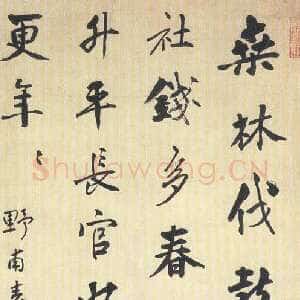 桒林伐鼓
社錢多春
升平長官
更年々
野甫
Shufawang.CN